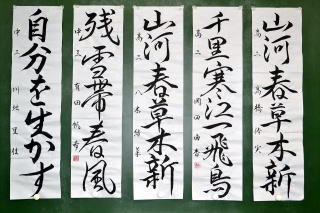 山河春草木新
高二
千里寒江一飛鳥
高二 岡田
山河春草木新
高二 八木
残雪帯春風
中三 有田
自分を生かす
中三